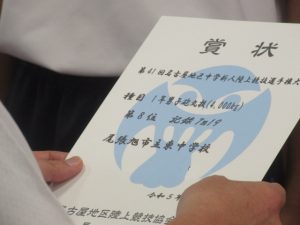 賞状
第41回名古屋地区中学新人陸上競技選手権大
種目 1年男子砲丸投(4.000kg)
第8位 記録 7m19
尾張旭市立東中学校
令和5年
古屋地区陸上競技協会